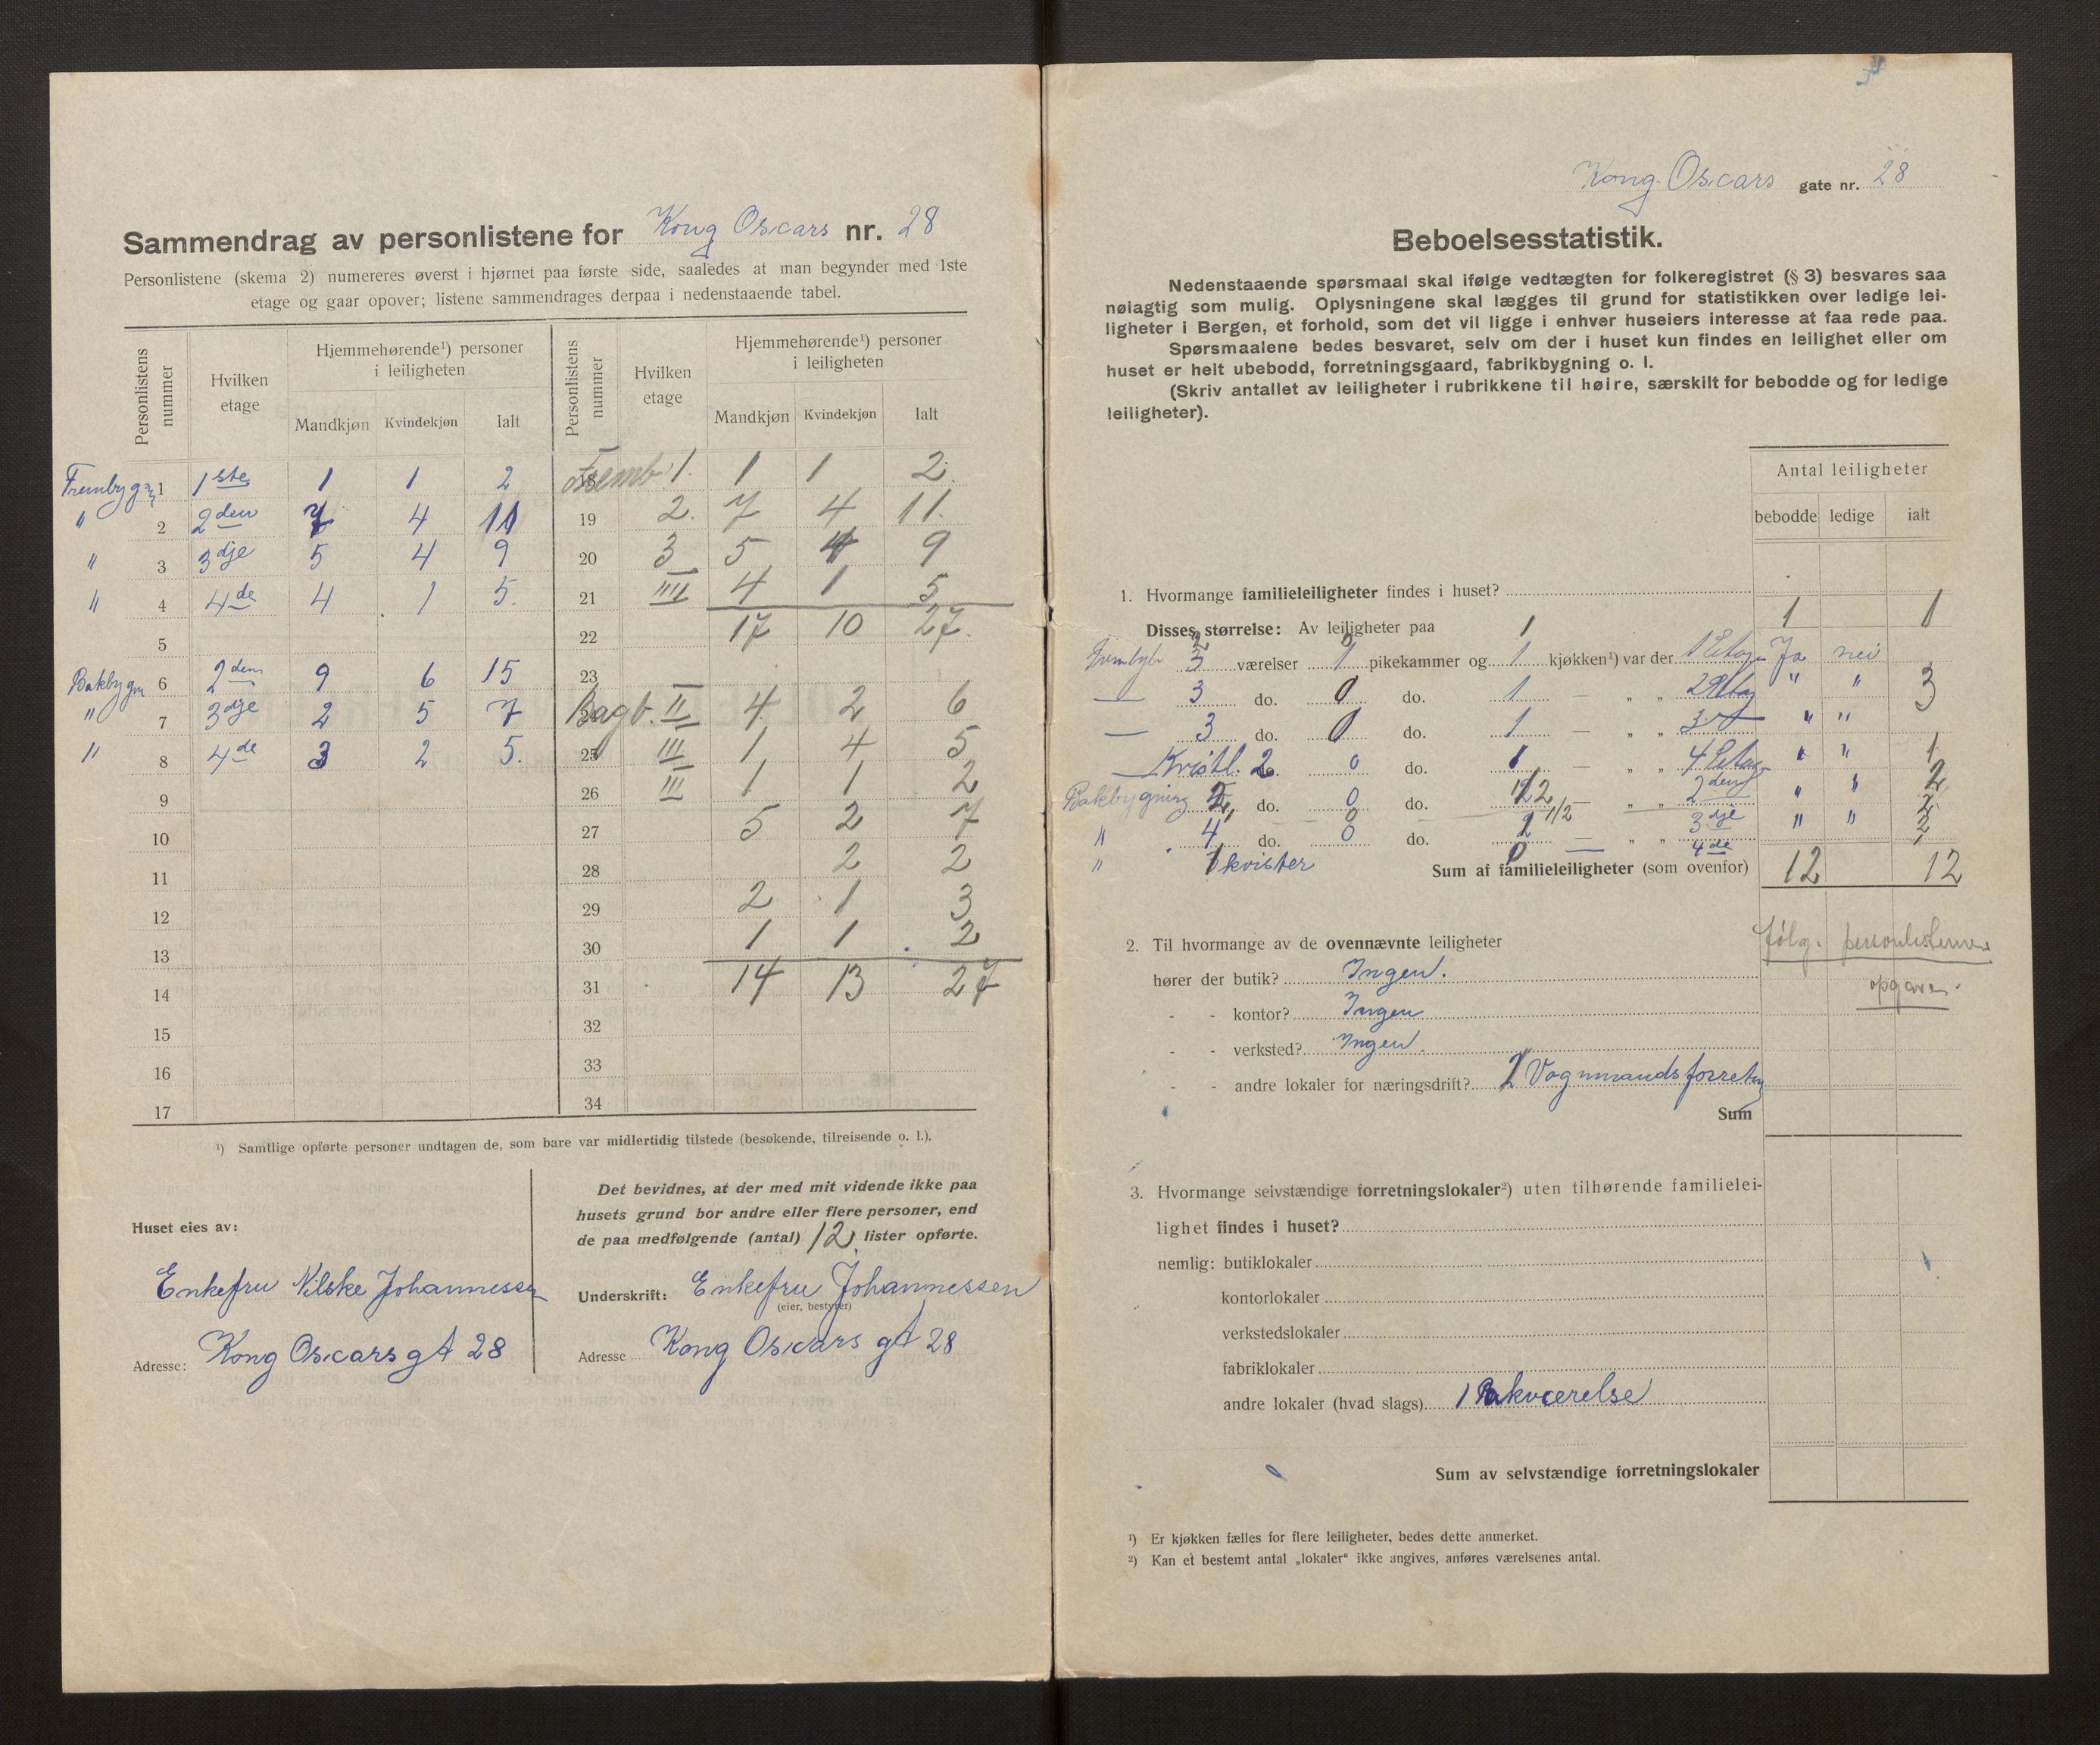 Sammendrag av personlistene for Kong Oscars nr. 28
Personlistene (skema 2) numereres øverst i hjørnet paa første side, saaledes at man begynder med 1ste
etage og gaar opover; listene sammendrages derpaa i nedenstaaende tabel.
Personlistens nummer | Hvilken etage | Hjemmehørende¹) personer i leiligheten | Personlistens nummer | Hvilken etage | Hjemmehørende¹) personer i leiligheten
Mandkjøn | Kvindekjøn | Ialt | Mandkjøn | Kvindekjøn | Ialt
1 1ste 1 1 2 | 18 Fremb. 1. 1 1 2.
" 2 2den 7 4 11 | 19 2. 7 4 11.
" 3 3dje 5 4 9 | 20 3 5 4 9
" 4 4de 4 1 5. | 21 IIII 4 1 5
5 | 22 17 10 27.
Bakbygn 6 2den 9 6 15 | 23
" 7 3dje 2 5 7 | Bagb. II 4 2 6
" 8 4de 3 2 5. | 25 III 1 4 5
9 | 26 III 1 1 2
10 | 27 5 2 7
11 | 28 2 2
12 | 29 2 1 3
13 | 30 1 1 2
14 | 31 14 13 27
15 | 32
16 | 33
17 | 34
¹) Samtlige opførte personer undtagen de, som bare var midlertidig tilstede (besøkende, tilreisende o. l.).
Huset eies av:
Enkefru Johannessen
Adresse: Kong Oscars gt 28
Det bevidnes, at der med mit vidende ikke paa
husets grund bor andre eller flere personer, end
de paa medfølgende (antal) 12 lister opførte.
Underskrift: Enkefru Johannessen
(eier, bestyrer)
Adresse Kong Oscars gt 28
Kong Oscars gate nr. 28
Beboelsesstatistik.
Nedenstaaende spørsmaal skal ifølge vedtægten for folkeregistret (§ 3) besvares saa
nøiagtig som mulig. Oplysningene skal lægges til grund for statistikken over ledige lei-
ligheter i Bergen, et forhold, som det vil ligge i enhver huseiers interesse at faa rede paa.
Spørsmaalene bedes besvaret, selv om der i huset kun findes en leilighet eller om
huset er helt ubebodd, forretningsgaard, fabrikbygning o. l.
(Skriv antallet av leiligheter i rubrikkene til høire, særskilt for bebodde og for ledige
leiligheter).
Antal leiligheter
bebodde | ledige | ialt
1. Hvormange familieleiligheter findes i huset?
Disses størrelse: Av leiligheter paa 1 1 1
værelser pikekammer og 1 kjøkken¹) var der 1 Etage Ja nei
— 3 do. 0 do. 1 — " " 2 Etag " " 3
— 3 do. 0 do. 1 — " " " "
Kvistl. 2 do. 0 do. 1 — " " 4 Etage " " 1
Bakbygning do. 0 do. — " " 2den " " 2
" 4 do. 0 do. — " " 3dje " " 2
" kvister 4de
Sum af familieleiligheter (som ovenfor) 12 12
følg. personlisternes
opgave.
2. Til hvormange av de ovennævnte leiligheter
hører der butik? Ingen.
- - kontor? Ingen
- - verksted? Ingen.
- - andre lokaler for næringsdrift? Vognmandsforretng
Sum
3. Hvormange selvstændige forretningslokaler²) uten tilhørende familielei-
lighet findes i huset?
nemlig: butiklokaler
kontorlokaler
verkstedslokaler
fabriklokaler
andre lokaler (hvad slags) 1 Bakværelse
Sum av selvstændige forretningslokaler
¹) Er kjøkken fælles for flere leiligheter, bedes dette anmerket.
²) Kan et bestemt antal „lokaler" ikke angives, anføres værelsenes antal.